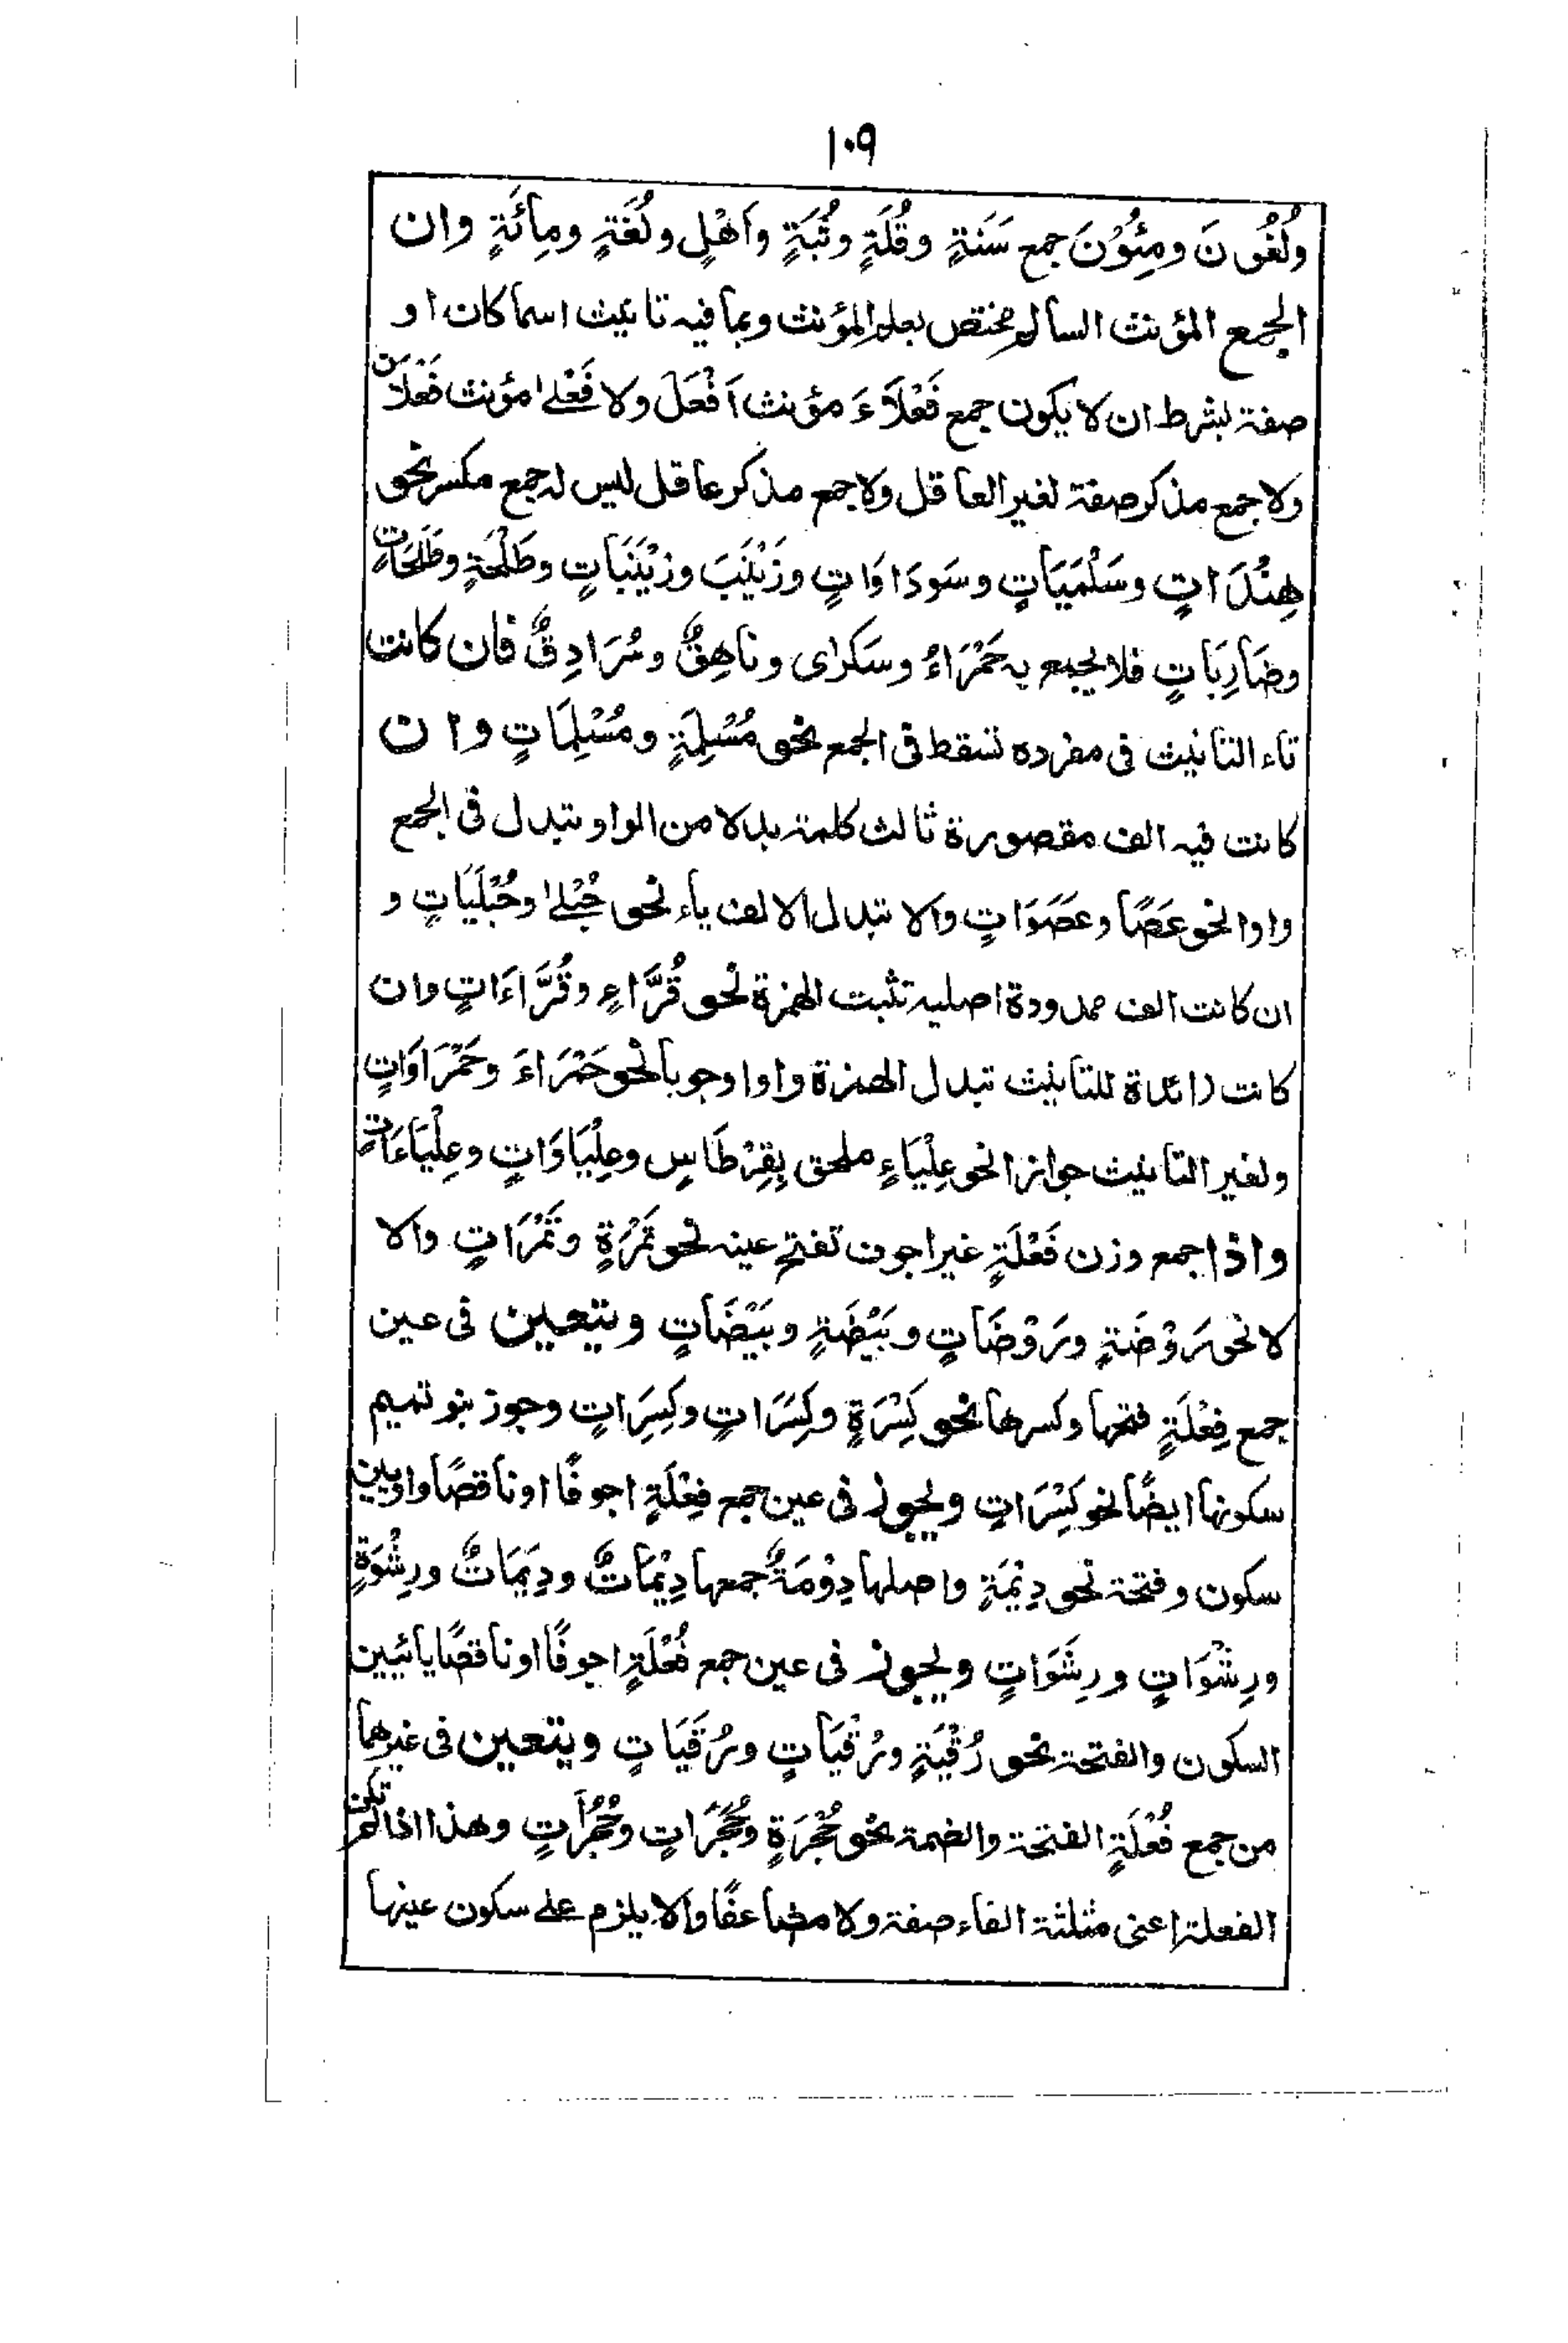 ١٠٩
ولُغُونَ ومِئُوْنَ جمع سَنَةٍ وقُلَةٍ وثُبَةٍ وأَهْلٍ ولُغَةٍ ومِأئَةٍ وان
الجمع المؤنث السالم مختص بعلم المؤنث وبما فيه تانيث اسما كان او
صفة بشرط ان لا يكون جمع فَعْلَاءَ مؤنث اَفْعَلَ ولا فَعْلےٰ مؤنث فَعْلَانَ
ولا جمع مذكر صفة لغير العاقل ولا جمع مذكر عاقل ليس له جمع مكسر نحو
هِنْدَاتٍ وسَلْمَيَاتٍ وسَودَاوَاتٍ وزَيْنَبَ وزَيْنَبَاتٍ وطَلْحَةٍ وطَلْحَاتٍ
وضَارِبَاتٍ فلا يجمع به حَمْرَاءُ وسَكرٰى وناهِقٌ وسُرَادِقٌ فان كانت
تاء التانيث فى مفرده تسقط فى الجمع نحو مُسْلِمَةٍ ومُسْلِمَاتٍ وان
كانت فيه الف مقصورة ثالث كلمة بدلا من الواو تبدل فى الجمع
واوا نحو عَصًا وعَصَوَاتٍ والا تبدل الالف ياء نحو حُبْلےٰ وحُبْلَيَاتٍ و
ان كانت الف ممدودة اصلية تثبت الهمزة نحو قُرَّاءٍ وقُرَّاءَاتٍ وان
كانت زائدة للتانيث تبدل الهمزة واوا وجوبا نحو حَمْرَاءَ وحَمْرَاوَاتٍ
ولغير التانيث جوازا نحو عِلْيَاءٍ ملحق بِقِرْطَاسٍ وعِلْيَاوَاتٍ وعِلْيَاءَاتٍ
واذا جمع وزن فَعْلَةٍ غير اجوف تفتح عينه نحو تَمْرَةٍ وتَمَرَاتٍ والا
لا نحو رَوْضَةٍ ورَوْضَاتٍ وبَيْضَةٍ وبَيْضَاتٍ ويتعين فى عين
جمع فِعْلَةٍ فتحها وكسرها نحو كِسْرَةٍ وكِسَرَاتٍ وكِسِرَاتٍ وجوز بنو تميم
سكونها ايضًا نحو كِسْرَاتٍ ويجوز فى عين جمع فِعْلَةٍ اجوفًا او ناقصًا واويين
سكون وفتحة نحو دِيْمَةٍ واصلها دِوْمَةٌ جمعها دِيْمَاتٌ ودِيَمَاتٌ ورِشْوَةٍ
ورِشْوَاتٍ ورِشَوَاتٍ ويجوز فى عين جمع فُعْلَةٍ اجوفًا او ناقصًا يائيين
السكون والفتحة نحو رُقْيَةٍ ورُقْيَاتٍ ورُقَيَاتٍ ويتعين فى غيرهما
من جمع فُعْلَةٍ الفتحة والضمة نحو حُجْرَةٍ وحُجَرَاتٍ وحُجُرَاتٍ وهذا اذا لم تكن
الفعلة اعنى مثلثة الفاء صفة ولا مضاعفًا والا يلزم علے سكون عينها